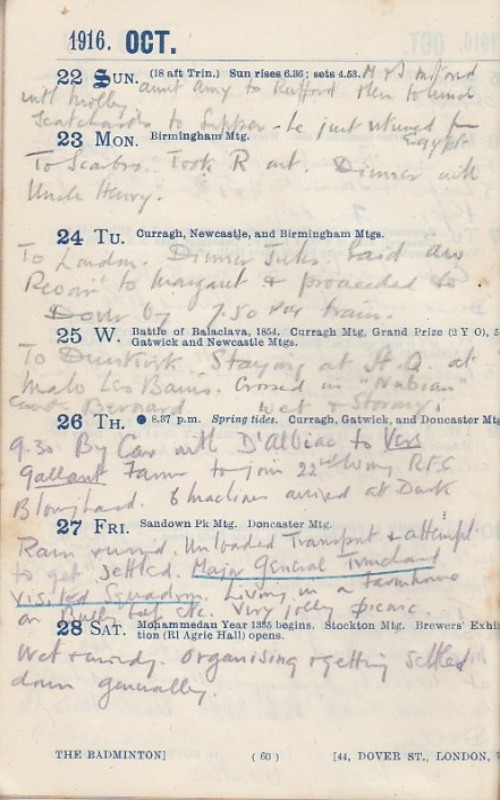 1916. OCT.
22 SUN. (18 aft Trin.) Sun rises 6.36; sets 4.53. M
with Molly aunt Amy to Rufford then to lunch
to Supper - he just returned from
Egypt
23 MON. Birmingham Mtg.
To Scarbro. Took R out. Dinner with
Uncle Henry.
24 TU. Curragh, Newcastle, and Birmingham Mtgs.
To London. Dinner Said au
Revoir to Margaret & proceeded to
Dover by 7.50 pm train.
25 W. Battle of Balaclava, 1854. Curragh Mtg, Grand Prize (2 Y O), 5
Gatwick and Newcastle Mtgs.
To Dunkirk. Staying at H.Q. at
Malo Les Bains. Crossed in "Nubian"
Bernard wet & Stormy.
26 TH. 8.37 p.m. Spring tides. Curragh, Gatwick, and Doncaster Mtg
9.30 By Car with D'Albiac to Vert
Gallant Farm to join 22nd Wing R.F.C
6 machines arrived at Dusk
27 FRI. Sandown Pk Mtg. Doncaster Mtg.
Rain & wind. Unloaded Transport & attempt
to get settled. Major General Trenchard
Visited Squadron. Living in a Farmhouse
on Bully beef etc. Very jolly picnic.
28 SAT. Mohammedan Year 1335 begins. Stockton Mtg. Brewers' Exhi
tion (Rl Agric Hall) opens.
Wet & windy. Organising & getting settled
down generally.
THE BADMINTON] (60) [44, DOVER ST., LONDON,